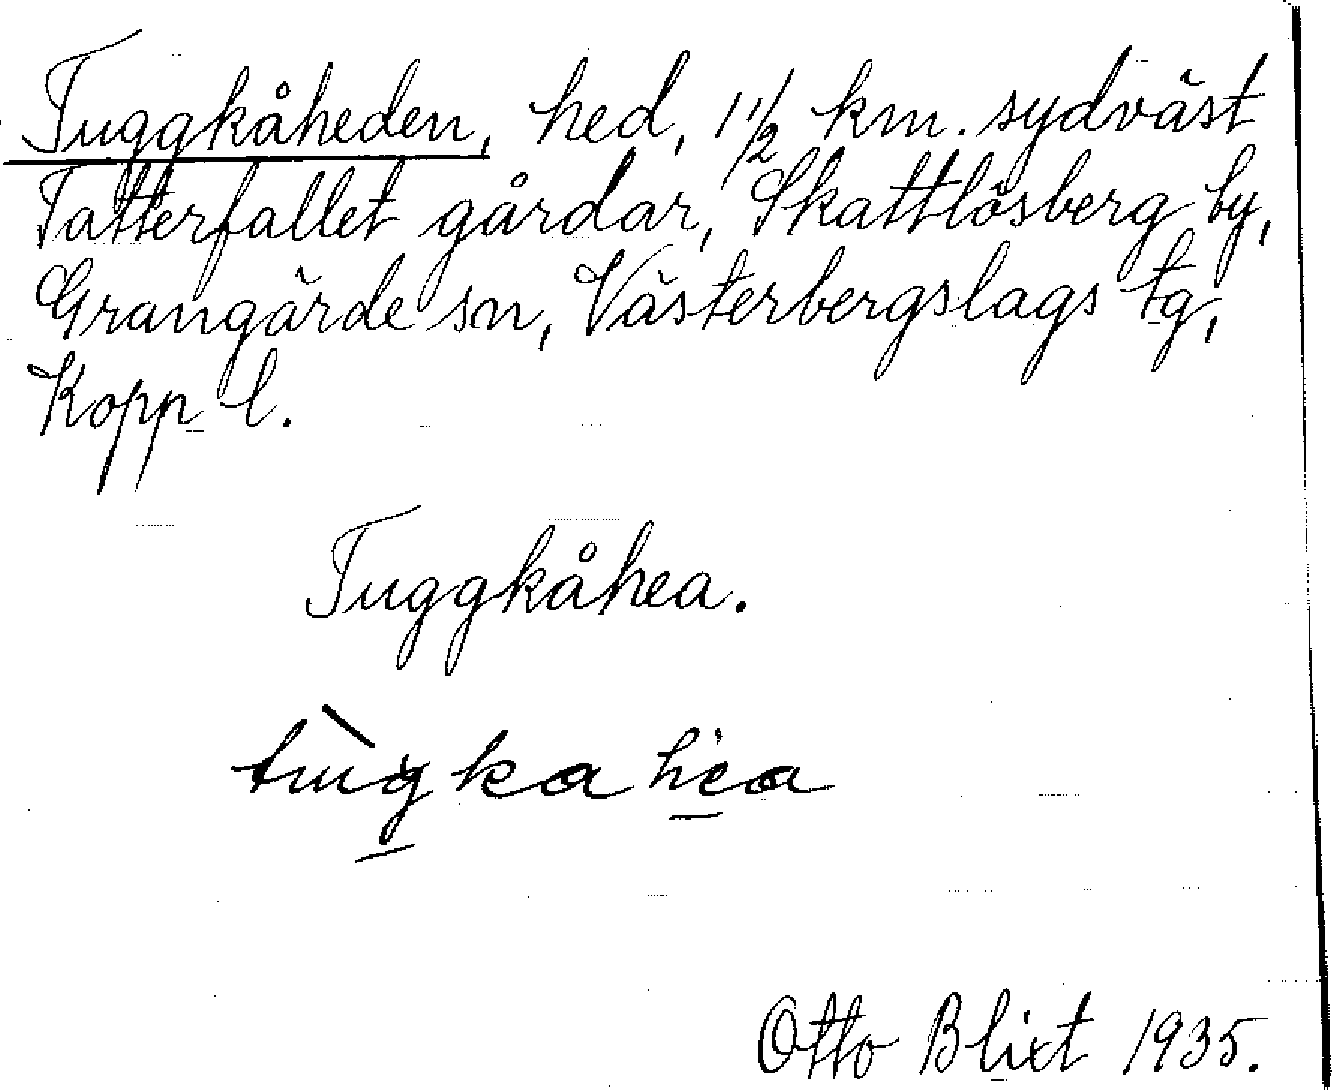 Tuggkåheden, hed, 1 1/2 km. sydväst
Tatterfallet gårdar, Skattlösberg by,
Grangärde sn, Västerbergslags tg,
Kopp l.
Tuggkåhea.
Otto Blixt 1935.